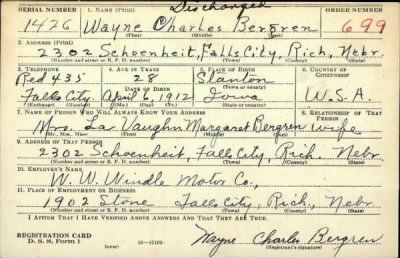 SERIAL NUMBER 1. NAME (Print) Discharged ORDER NUMBER
1426 Wayne Charles Bergren 699
(First) (Middle) (Last)
2. ADDRESS (Print)
2302 Schoenheit, Falls City, Rich, Nebr.
(Number and street or R. F. D. number) (Town) (County) (State)
3. TELEPHONE 4. AGE IN YEARS 5. PLACE OF BIRTH 6. COUNTRY OF CITIZENSHIP
Red 435 28 Stanton
DATE OF BIRTH (Town or county)
Falls City April 6, 1912 Iowa U.S.A.
(Exchange) (Number) (Mo.) (Day) (Yr.) (State or country)
7. NAME OF PERSON WHO WILL ALWAYS KNOW YOUR ADDRESS 8. RELATIONSHIP OF THAT PERSON
Mrs. La Vaughn Margaret Bergren wife
(Mr., Mrs., Miss) (First) (Middle) (Last)
9. ADDRESS OF THAT PERSON
2302 Schoenheit, Falls City, Rich, Nebr.
(Number and street or R. F. D. number) (Town) (County) (State)
10. EMPLOYER'S NAME
W. W. Windle Motor Co.,
11. PLACE OF EMPLOYMENT OR BUSINESS
1902 Stone, Falls City, Rich., Nebr.
(Number and street or R. F. D. number) (Town) (County) (State)
I AFFIRM THAT I HAVE VERIFIED ABOVE ANSWERS AND THAT THEY ARE TRUE.
REGISTRATION CARD
D. S. S. Form 1 Wayne Charles Bergren
(Registrant's signature)